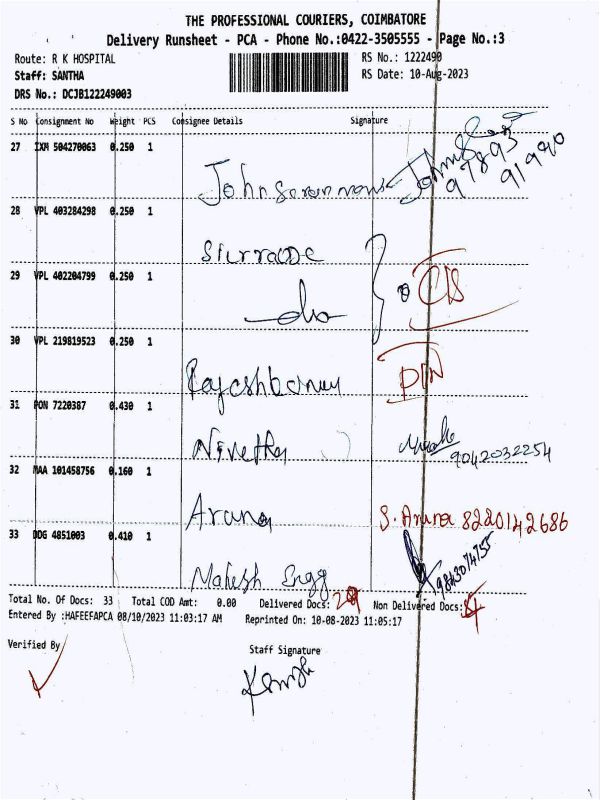 THE PROFESSIONAL COURIERS, COIMBATORE
Delivery Runsheet - PCA - Phone No.:0422-3505555 - Page No.:3
Route: R K HOSPITAL RS No.: 1222490
Staff: SANTHA RS Date: 10-Aug-2023
DRS No.: DCJB122249003
S No Consignment No Weight PCS Consignee Details Signature
27 IXM 504270063 0.250 1
97893
91990
28 VPL 403284298 0.250 1
29 VPL 402204799 0.250 1
30 VPL 219819523 0.250 1
31 PON 7220387 0.430 1
Nivetha 9042032254
32 MAA 101458756 0.160 1
Aruna S. Aruna 8220142686
33 DDG 4851003 0.410 1
Mahesh Engg 9843074755
Total No. Of Docs: 33 Total COD Amt: 0.00 Delivered Docs: Non Delivered Docs:
Entered By :HAFEEFAPCA 08/10/2023 11:03:17 AM Reprinted On: 10-08-2023 11:05:17
Verified By Staff Signature